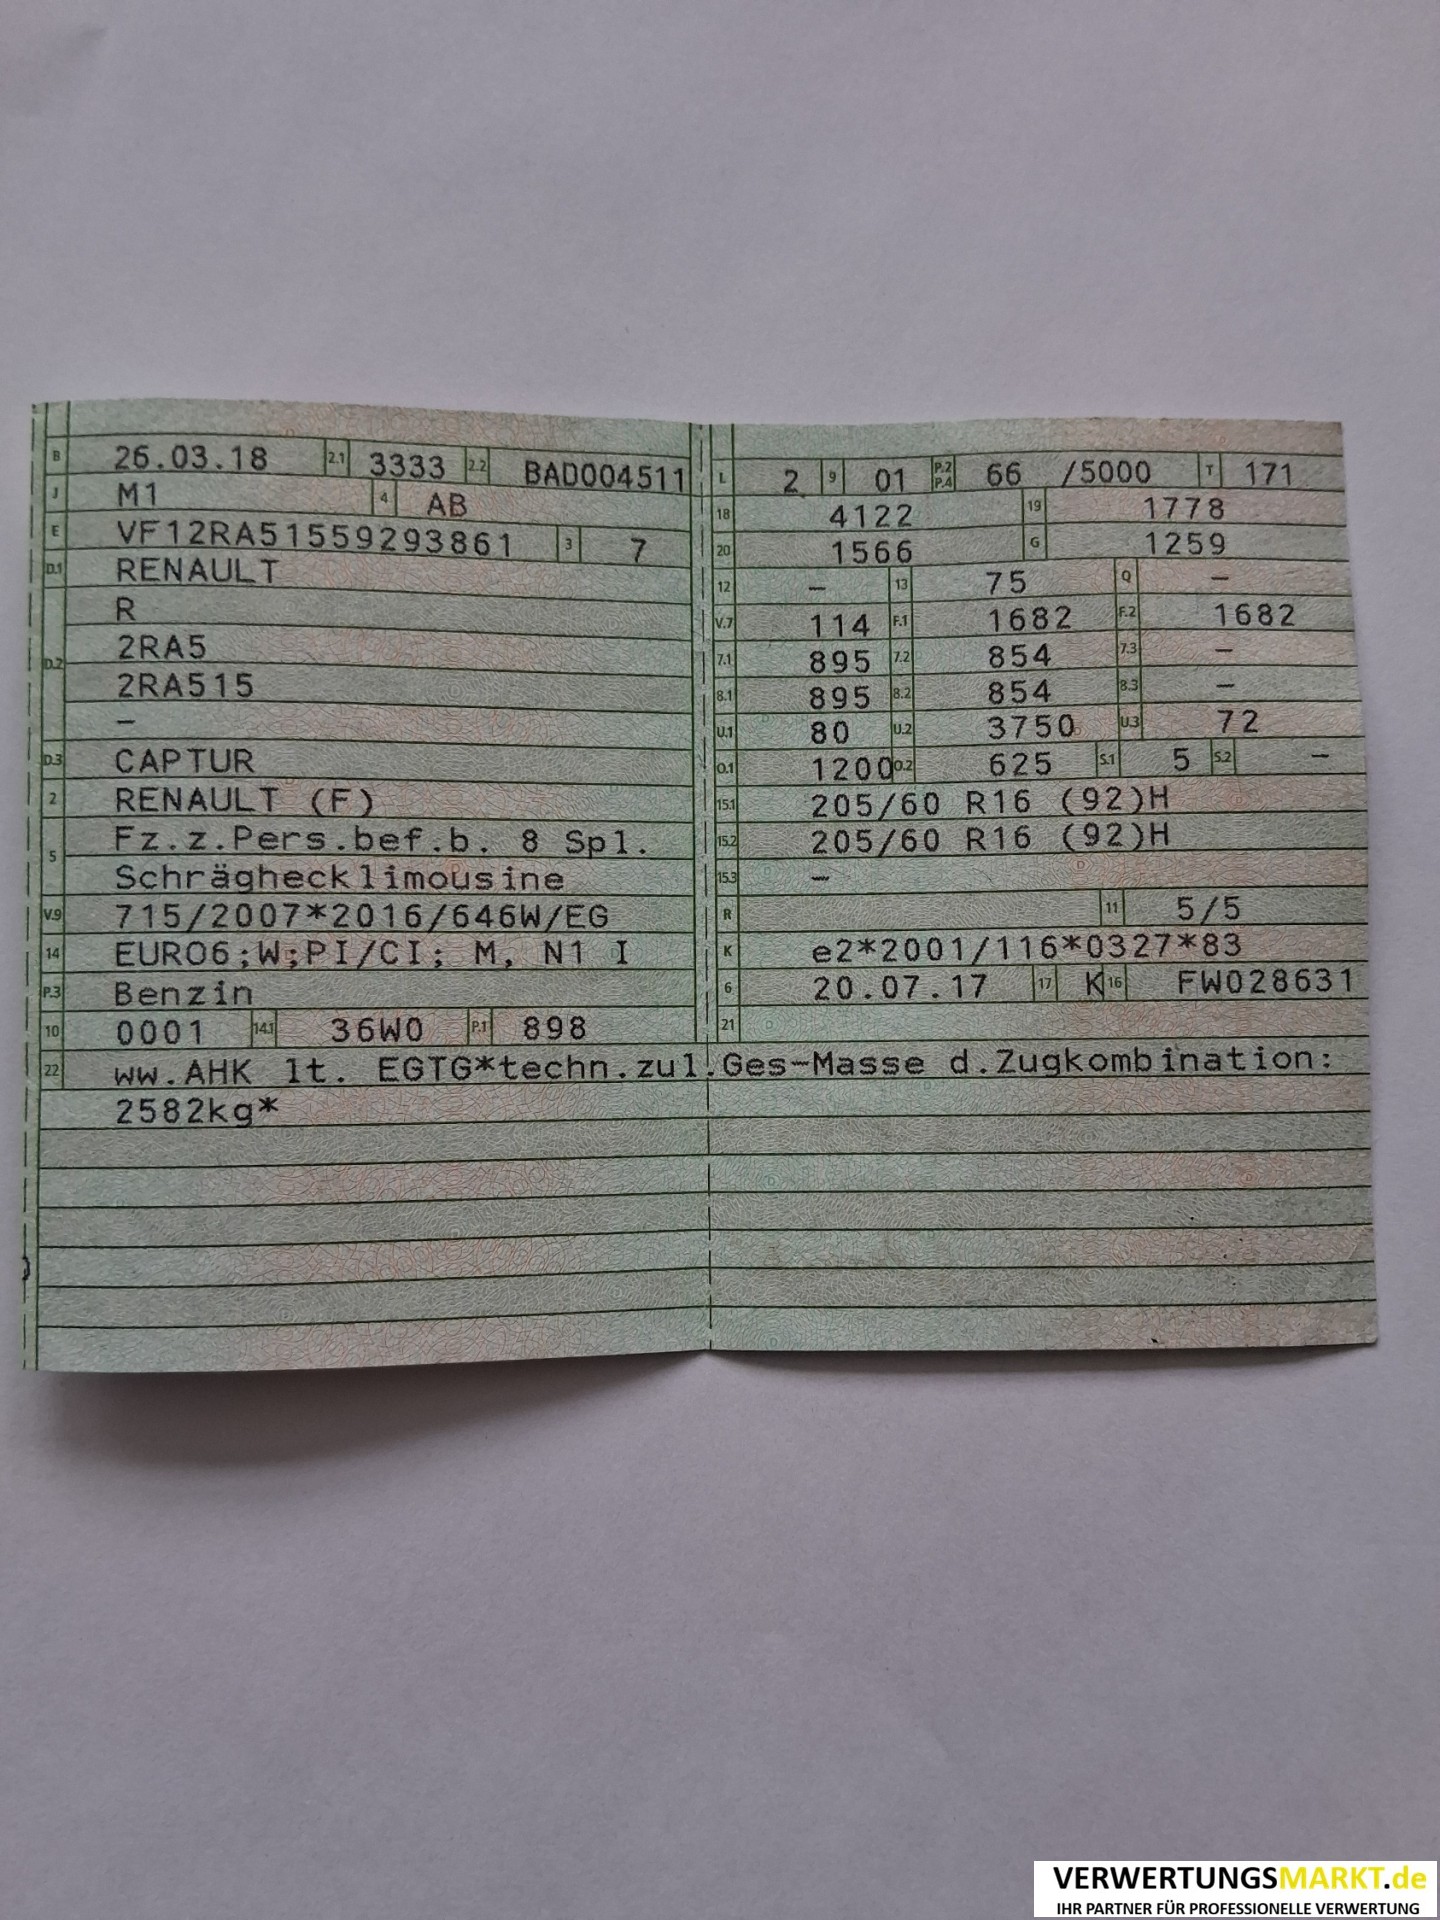 B 26.03.18 2.1 3333 2.2 BAD004511
J M1 4 AB
E VF12RA51559293861 3 7
D.1 RENAULT
R
D.2 2RA5
2RA515
–
D.3 CAPTUR
2 RENAULT (F)
5 Fz.z.Pers.bef.b. 8 Spl.
Schräghecklimousine
V.9 715/2007*2016/646W/EG
14 EURO6;W;PI/CI; M, N1 I
P.3 Benzin
10 0001 14.1 36W0 P.1 898
L 2 9 01 P.2 P.4 66 /5000 T 171
18 4122 19 1778
20 1566 G 1259
12 – 13 75 Q –
V.7 114 F.1 1682 F.2 1682
7.1 895 7.2 854 7.3 –
8.1 895 8.2 854 8.3 –
U.1 80 U.2 3750 U.3 72
O.1 1200 O.2 625 S.1 5 S.2 –
15.1 205/60 R16 (92)H
15.2 205/60 R16 (92)H
15.3 –
R 11 5/5
K e2*2001/116*0327*83
6 20.07.17 17 K 16 FW028631
21
22 ww.AHK lt. EGTG*techn.zul.Ges-Masse d.Zugkombination:
2582kg*
VERWERTUNGSMARKT.de
IHR PARTNER FÜR PROFESSIONELLE VERWERTUNG